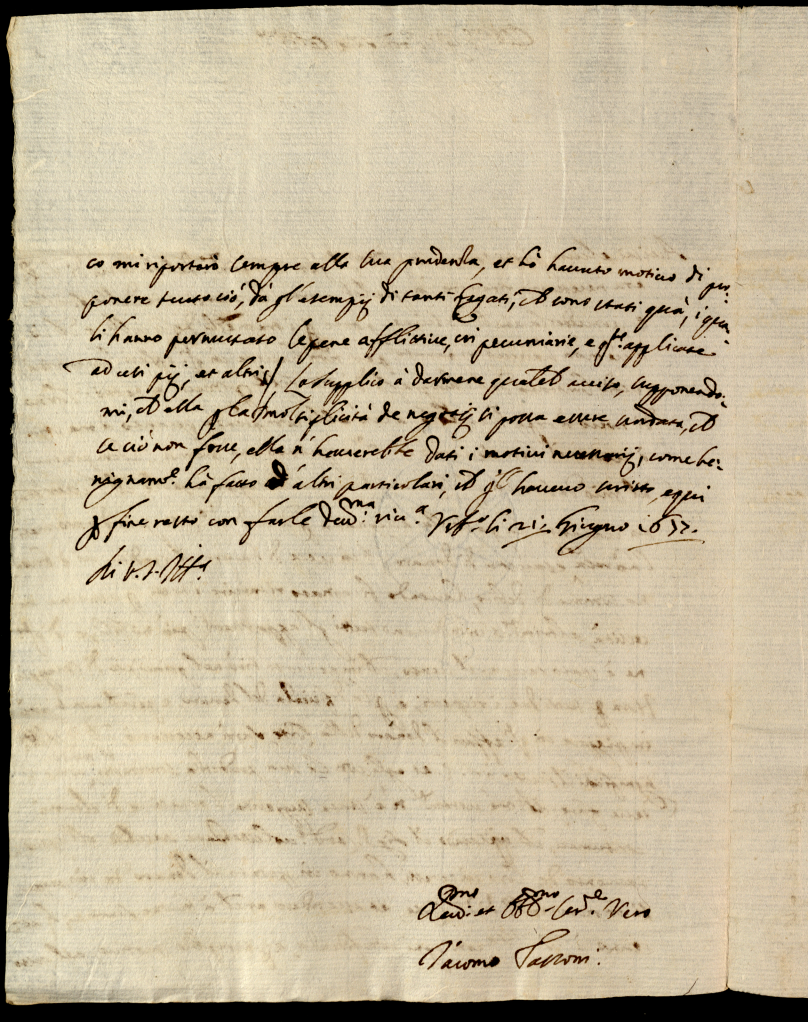 co mi riporterò sempre alla sua prudenza, et hò havuto motivo di pro:
ponere tutto ciò, dà gl'esempij di tanti Legati, ch sono stati quà, i qua
li hanno permutato le pene afflittive, in pecuniarie, e qste applicate
ad usi pij, et altri La supplico à darmene qualch aviso, supponendo:
mi, ch ella p la moltiplicità de negotij si possa essere scordata, ch
se ciò non fosse, ella n' haverebbe dati i motivi necessarij, come be:
nignamte hà fatto ad altri particolari, ch gl' haveano scritto, e qui
p fine resto con farle devma riva li 21 Giugno 1657.
Di V. S. Illma
Devmo et Obbmo Serre Vero
Giacomo